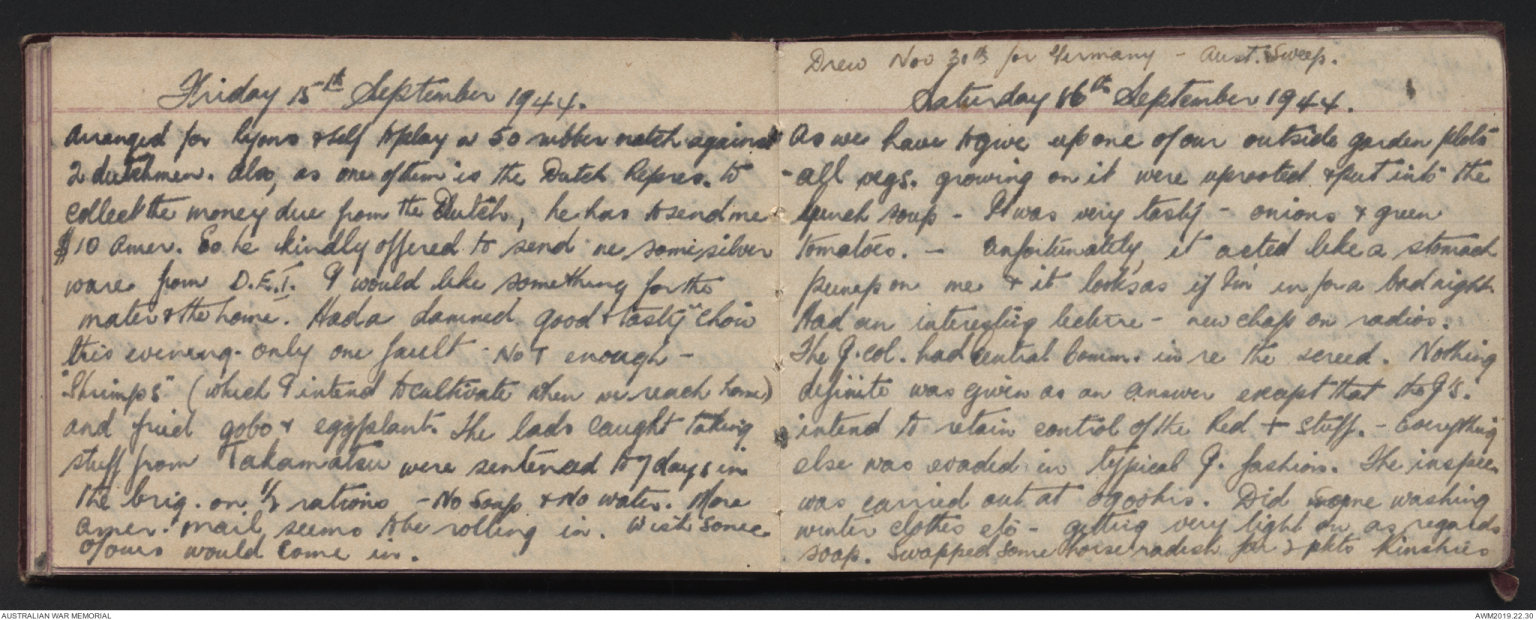 Friday 15th September 1944.
Arranged for Lyons & self to play a 50 rubber match against
2 dutchmen. Also, as one of them is the Dutch Repres. to
collect the money due from the Dutch, he has to send me
$10 Amer. So he kindly offered to send me some silver
ware from D.E.I. I would like something for the
mater & the home. Had a damned good & tasty chow
this evening. only one fault - NOT enough -
"Shrimps" (which I intend to cultivate when we reach home)
and fried gobo & eggplant. The lads caught taking
stuff from Takamatsu were sentenced to 7 days in
the brig. on 1/2 rations - No Soap & No water. More
Amer. mail seems to be rolling in. Wish some
of ours would come in.
Drew Nov 30th for Germany - Aust. Sweep.
Saturday 16th September 1944.
As we have to give up one of our outside garden plots
- all vegs. growing on it were uprooted & put into the
lunch soup - It was very tasty - onions & green
tomatoes. - Unfortunately, it acted like a stomach
pump on me & it looks as if I'm in for a bad night.
Had an interesting lecture - new chap on radios.
The J. Col. had Central Comm. in re the screed. Nothing
definite was given as an answer except that the J's.
intend to retain control of the Red + Stuff. - Everything
else was evaded in typical J. fashion. The inspec.
was carried out at Did some washing
winter clothes etc - getting very tight on as regards
soap. Swapped some horse radish for 2 pkts Kinshies